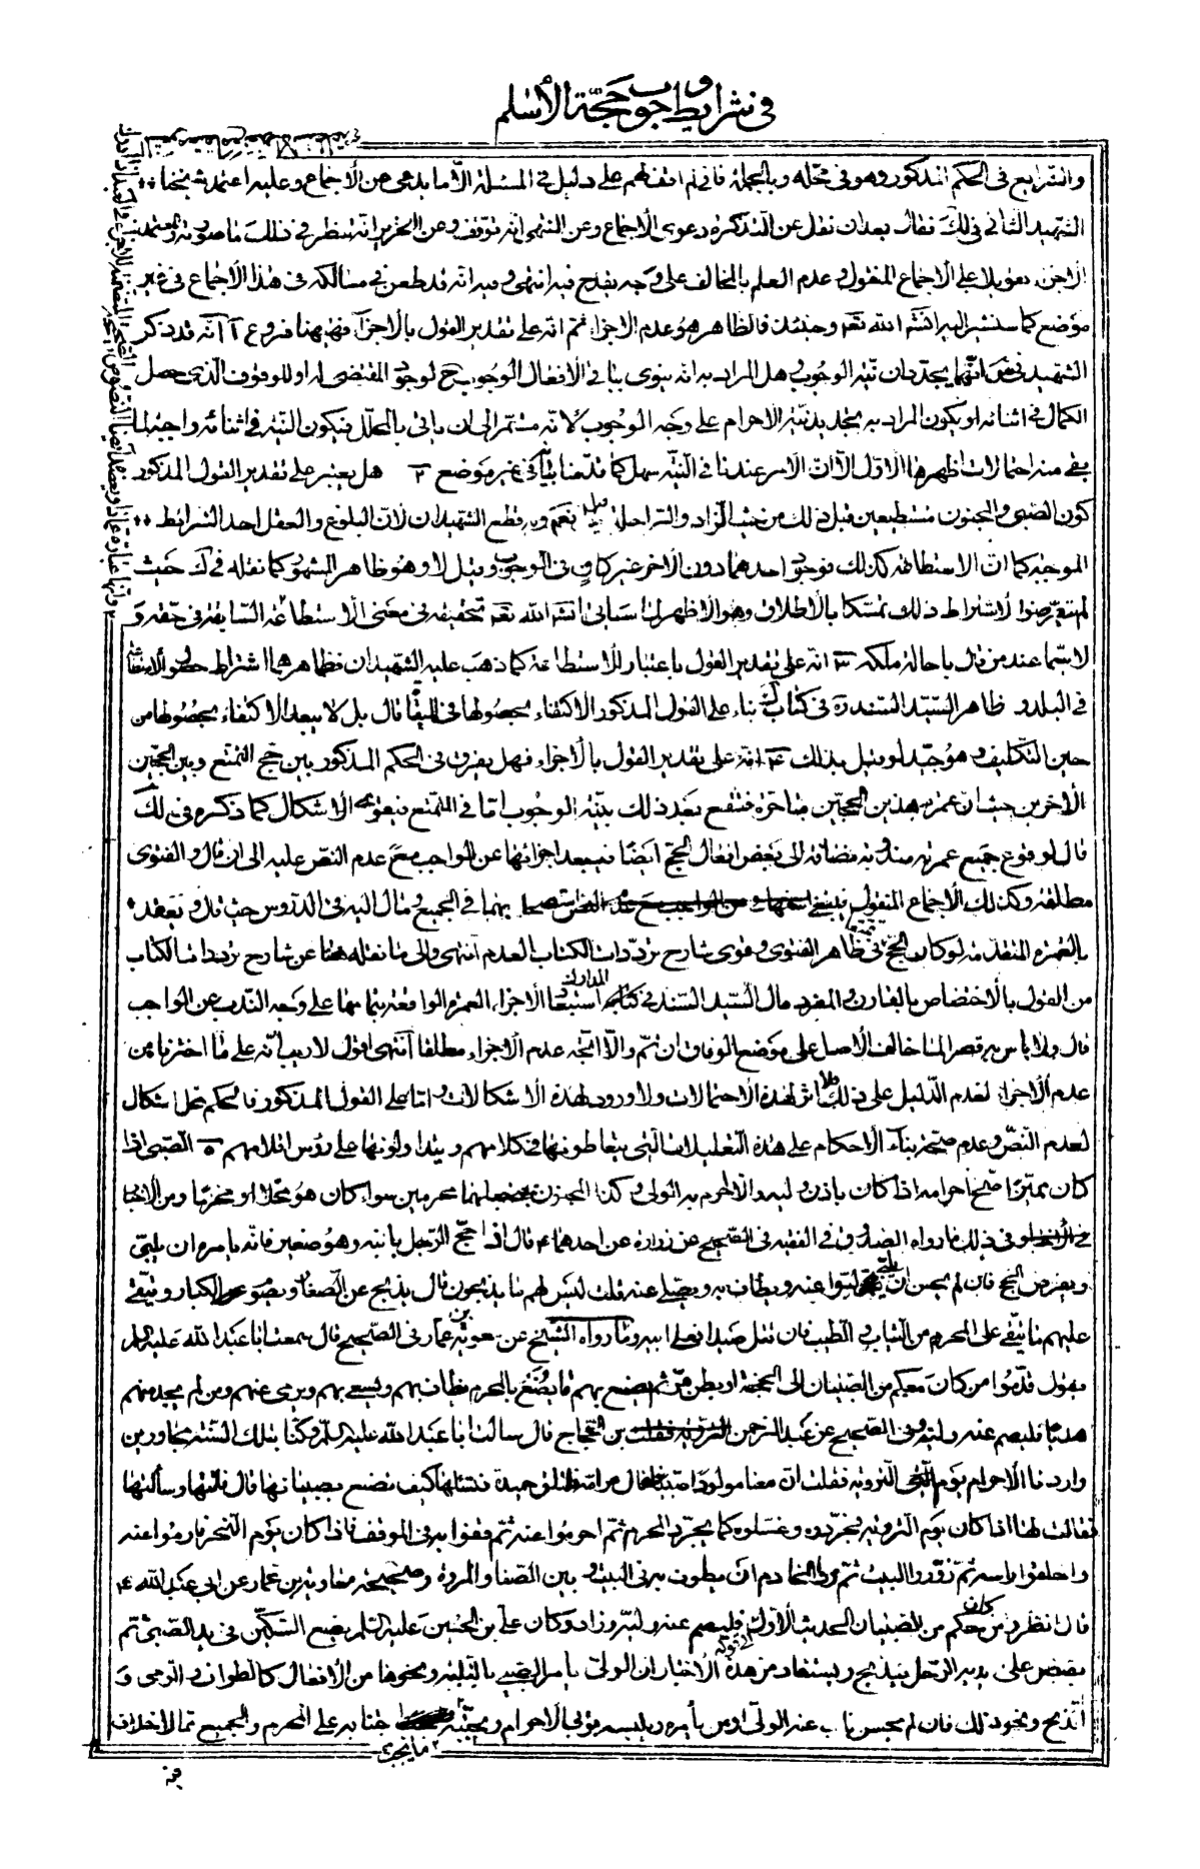 في شرايط وجوب حجّة الأسلم
والتفريع في الحكم المذكور وهو في محّله وبالجملة فاني لم اقف لهم على دليل في المسئلة الّا ما يدعى من الأجماع وعليه اعتمد شيخنا
الشهيد الثاني في لك فقال بعد ان نقل عن التذكرة دعوى الأجماع وعن المنتهى انه توقف وعن المحرير انه تنظر في ذلك ما صورته والمعتمد
الاجزاء تعويلا على الأجماع المنقول وعدم العلم بالمخالف على وجه يقدح فيه انتهى وفيه انه قد طعن في مسالكه في هذا الأجماع في غير
موضع كما سنشير اليه انشم الله تعم وحينئذ فالظاهر هو عدم الاجزاء ثم انه على تقدير القول بالأجزاء فيهنا فروع آ انه قد ذكر
الشهيد في ض انهما يجدّدان نيّة الوجوب وهل المراد به انه ينوي بباقي الأفعال الوجوب ح لوجود المقتضى له او للوقوف الذي حصل
الكمال في اثنائه او يكون المراد به تجديد نيّة الاحرام على وجه الوجوب لانّه مستمر الى ان ياتي بالمحلل فيكون النيّة في اثنائه واجبة لما
بقي منه احتمالات اظهرها الاوّل الّا ان الأمر عندنا في النيّة سهل كما قدّمنا بيانه في غير موضع ٢ هل يعتبر على تقدير القول المذكور
كون الصبي والمجنون مستطيعين قبل ذلك من حيث الزاد والراحلة قيل نعم وبه قطع الشهيدان لان البلوغ والعقل احد الشرائط
الموجبة كما ان الاستطاعة كذلك فوجود احدهما دون الأخر غير كاف في الوجوب وقيل لا وهو ظاهر المشهور كما نقله في ك حيث
لم يتعرّضوا لاشتراط ذلك تمسّكا بالاطلاق وهو الأظهر لما سياتي انشم الله تعم تحقيقه في معنى الأستطاعة السّابقة في حقّه و
لا سيّما عند من قال باحالة ملكه ٣ انه على تقدير القول باعتبار الاستطاعة كما ذهب عليه الشهيدان فظاهرهما اشتراط حصول الاستطاعة
في البلد و ظاهر السيّد السند في كتاب ك بناء على القول المذكور الاكتفاء بحصولها في الميقات قال بل لا يبعد الاكتفاء بحصولها من
حين التكليف وهو جيّد لو قيل بذلك ٤ انه على تقدير القول بالأجزاء فهل يفرق في الحكم المذكور بين حج التمتع وبين الحجّين
الأخرين حيث ان عمرة هذين الحجّين متاخرة فتقع بعد ذلك بنيّة الوجوب امّا في التمتع فيقوى الأشكال كما ذكره في لك
قال لوقوع جميع عمرته مندوبة مضافة الى بعض افعال الحج ايضا فيبعد اجزائها عن الواجب مع عدم النص عليه الى ان قال والفتوى
مطلقة وكذلك الأجماع المنقول فينبغي بهما في الجميع ومال اليه في الدروس حيث قال ويعتدّ
بالعمرة المتقدمة لو كان الحج تمتعا في ظاهر الفتوى وقوى شارح تردّدات الكتاب العدم انتهى والى ما نقله هنا عن شارح تردّدات الكتاب
من القول بالأختصاص بالقارن والمفرد مال السيّد السند في كتاب المدارك استبعادا لاجزاء العمرة الواقعة بتمامها على وجه الندب عن الواجب
قال ولا باس به قصرا لما خالف الأصل على موضع الوفاق ان تم والّا اتجه عدم الأجزاء مطلقا انتهى اقول لا ريب انه على ما اخترنا من
عدم الأجزاء لعدم الدّليل على ذلك فلا اثر لهذه الأحتمالات ولا ورود لهذه الأشكالات وامّا على القول المذكور فالحكم محل اشكال
لعدم النصّ وعدم صحّة بناء الأحكام على هذه التعليلات التي يتعاطونها في كلامهم ويتداولونها على رؤس اقلامهم ٥ الصبي اذا
كان مميّزا صحّ احرامه اذا كان باذن وليه والّا احرم به الولي وكذا المجنون سواء كان هو محلا او محرما ومن الأخبار
في ذلك ما رواه الصدوق في الفقيه في الصّحيح عن زرارة عن احدهما ع قال اذا حج الرّجل بابنه وهو صغير فانه يامره ان يلبّي
ويفرض الحج فان لم يحسن ان يلبي لبّوا عنه ويطاف به ويصلى عنه قلت ليس لهم ما يذبحون قال يذبح عن الصّغار ويصوم الكبار ويتّقى
عليهم ما يتّقى على المحرم من الثياب والطيب فان قتل صيدا فعلى ابيه وما رواه الشيخ عن معوية بن عمّار في الصّحيح قال سمعت ابا عبد الله عليه السلم
يقول قدّموا من كان معكم من الصبيان الى الجحفة او بطن مرّ ثم يصنع بهم ما يصنع بالمحرم يطاف بهم ويسعى بهم ويرمى عنهم ومن لم يجد منهم
هديا فليصم عنه وليّه وفي الصّحيح عن عبد الرحمن بن الحجاج قال سالت ابا عبد الله عليه السلم وكنّا بتلك السّنة مجاورين
واردنا الأحرام يوم التروية فقلت ان معنا مولودا صبيا فقال مر امّه فلتلق حميدة فتسئلها كيف تصنع بصبيانها قال فاتتها وسالتها
فقالت لها اذا كان يوم التروية فجرّدوه وغسّلوه كما يجرّد المحرم ثم احرموا عنه ثم قفوا به في الموقف فاذا كان يوم النحر فارموا عنه
واحلقوا راسه ثم زوّروا البيت ثم مر الخادم ان يطوف به في البيت و بين الصّفا والمروة وصحيحة معاوية بن عمّار عن ابي عبد الله ع
قال انظروا من كان معكم من الصّبيان الحديث الأوّل الى قوله فليصم عنه وليّه وزاد وكان علي بن الحسين عليه السلم يضع السّكين في يد الصّبي ثم
يقبض على يديه الرّجل فيذبح ويستفاد من هذه الأخبار ان الولي يأمر الصّبي بالتلبية ونحوها من الأفعال كالطواف والرمى و
الذبح ونحو ذلك فان لم يحسن ناب عنه الولي او من يأمره ويلبسه ثوبي الأحرام ويجنّبه ما يجب اجتنابه على المحرم والجميع ممّا لا خلاف
فيه